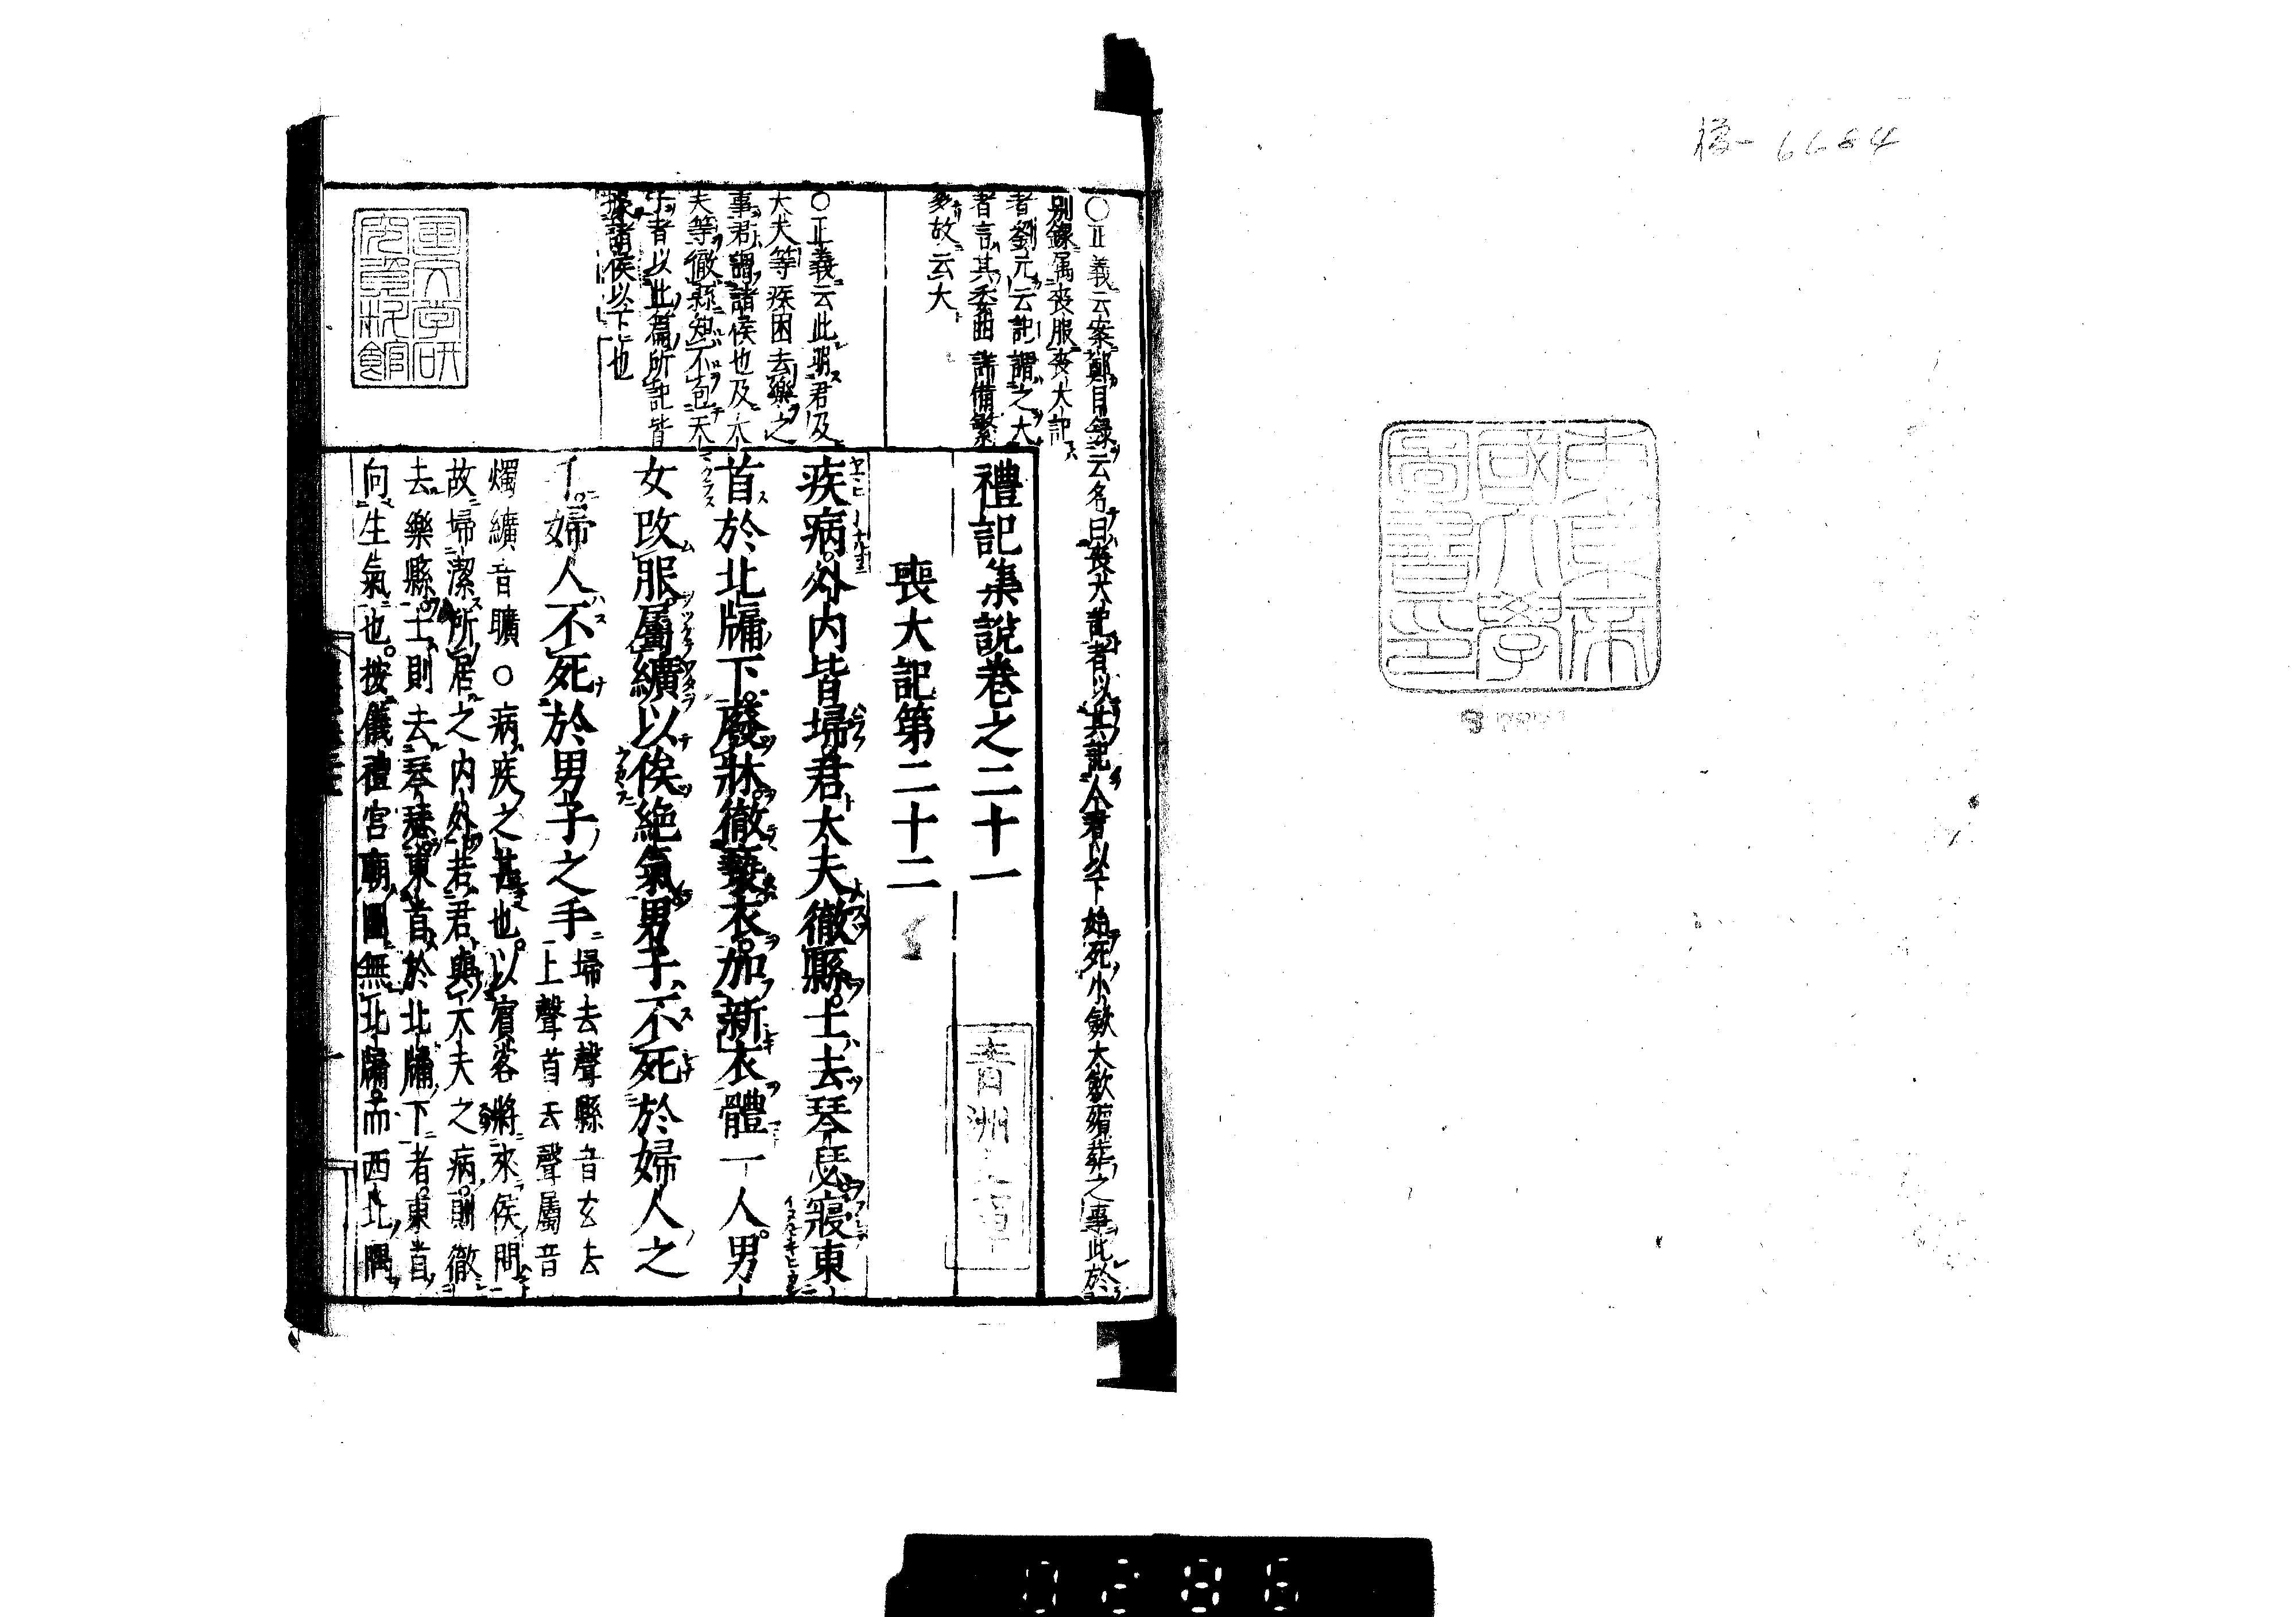 6684
東京帝
國大學
圖書印
○正義云案鄭目録云名曰喪大記者以其記人君以下始死小斂大斂殯葬之事此於
別録属喪服喪大記
者劉元云記謂之大
者言其委曲詳備繁
多故云大
禮記集說卷之二十一
青洲文庫
喪大記第二十二
○正義云此明君及
大夫等疾困去樂之
事君謂諸侯也及大
夫等徹縣知不包天
子者以此篇所記皆
據諸侯以下也
疾病外内皆埽君大夫徹縣士去琴瑟寢東
首於北牖下廢牀徹褻衣加新衣體一人男
女改服屬纊以俟絶氣男子不死於婦人之
手婦人不死於男子之手
埽去聲縣音玄去
上聲首去聲屬音
燭纊音曠○病疾之甚也以賓客將來候問
故埽潔所居之内外若君與大夫之病則徹
去樂縣士則去琴瑟東首於北牖下者東首
向生氣也按儀禮宮廟圖無北牖而西北隅
0286